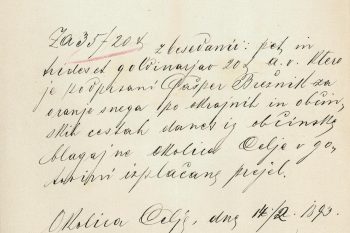 Za 35 f 20 x z besedami: pet in
trideset goldinarjov 20 x a. v. ktere
je podpisani Gašper Brešnik za
oranje snega po okrajnih in občin
skih cestah danes iz občinske
blagajne okolica Celje v go
tovini izplačane prejel.
Okolica Celje, dne 14/2. 1893.